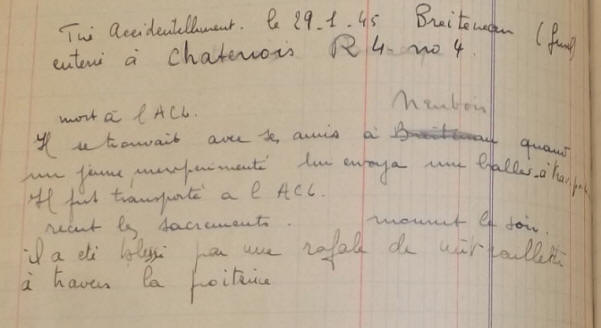 Tué Accidentellement. le 29-1-45 Breitenau
enterré à Chatenois R 4 no 4.
mort à l'ACL. Neubois
Il se trouvait avec ses amis à Breitenau quand
un jeune inexperimenté lui envoya une balles à
Il fut transporté a l'ACL.
recut les sacrements. mourut le soir.
il a eté blessé par une rafale de mitraillette
à travers la poitrine